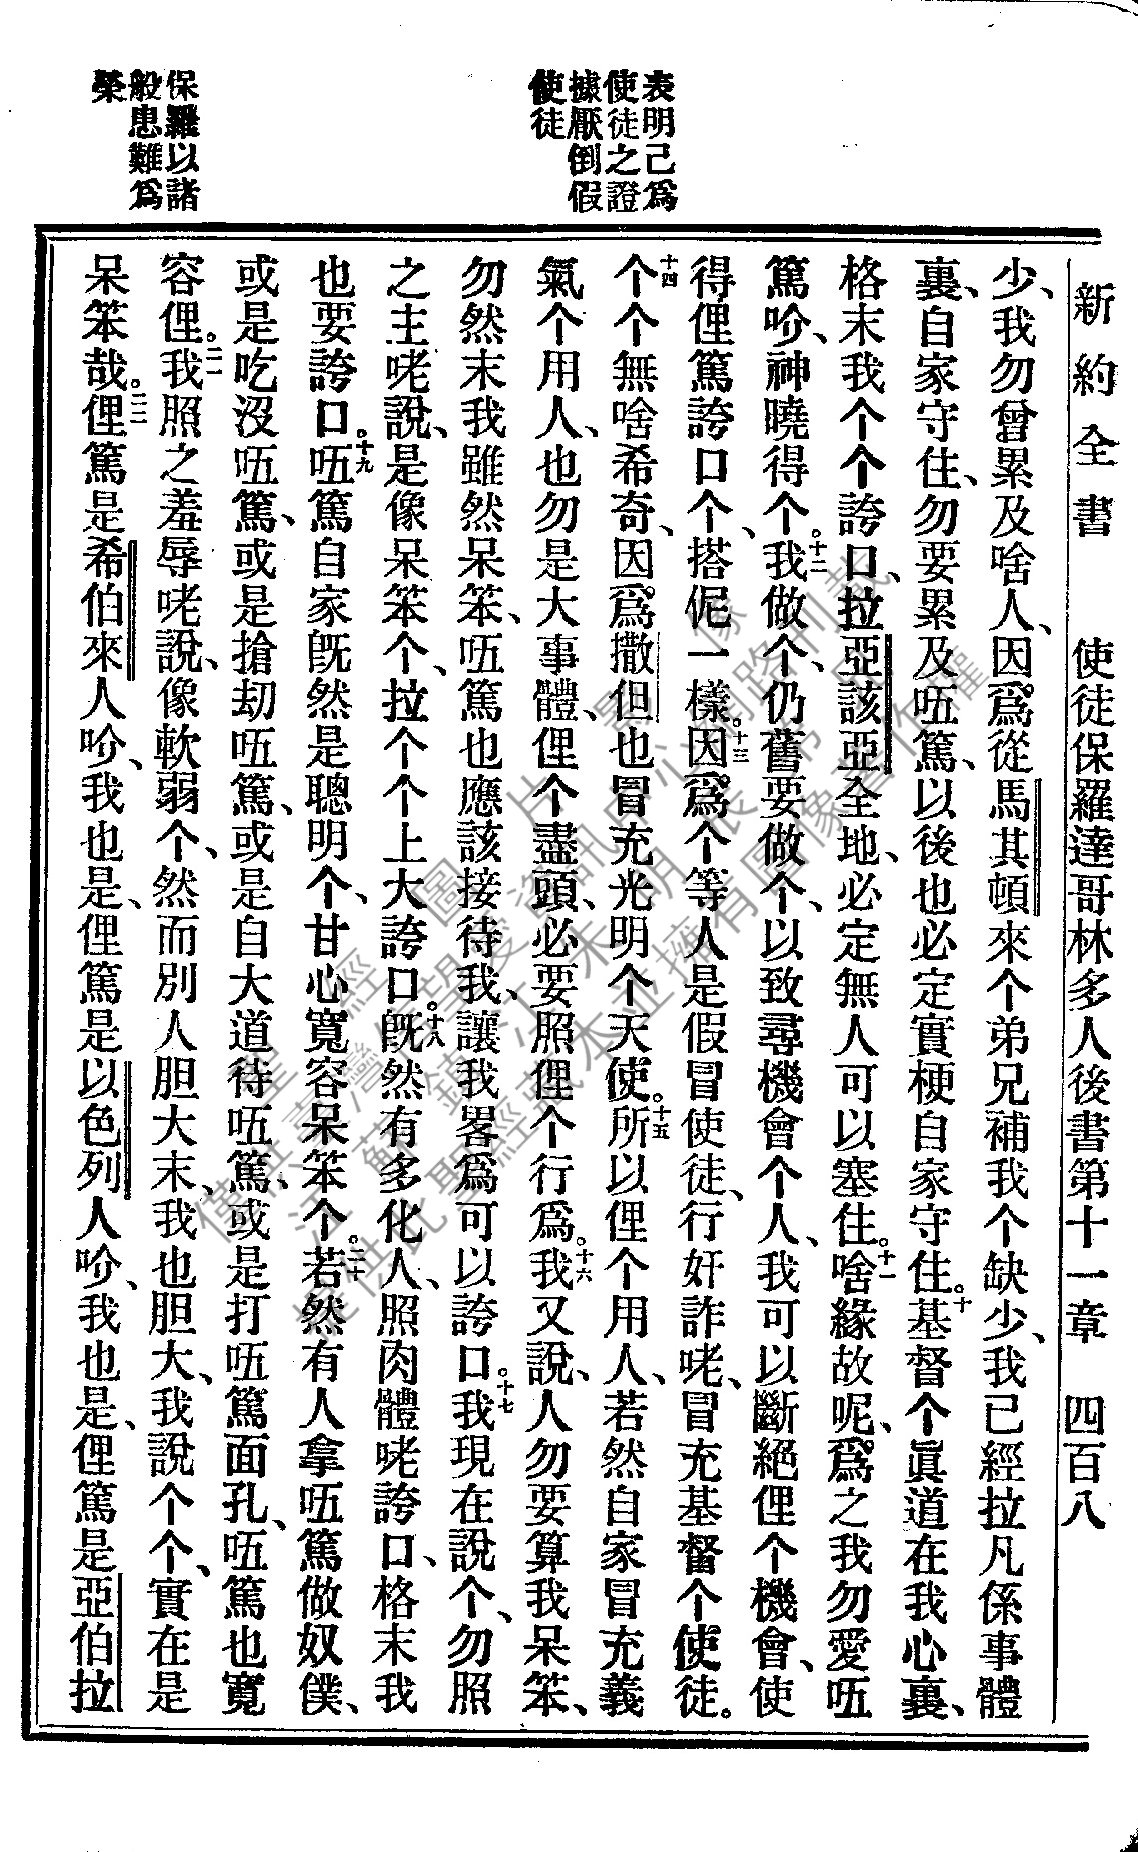 新約全書 使徒保羅達哥林多人後書第十一章 四百八
表明己爲
使徒之證
據厭倒假
使徒
保羅以諸
般患難爲
榮
少、我勿曾累及啥人、因爲從馬其頓來个弟兄補我个缺少、我已經拉凡係事體
裏、自家守住、勿要累及㕶篤、以後也必定實梗自家守住。十基督个眞道在我心裏、
格末我个个誇口、拉亞該亞全地、必定無人可以塞住。十一啥緣故呢、爲之我勿愛㕶
篤吤、神曉得个。十二我做个、仍舊要做个、以致尋機會个人、我可以斷絕俚个機會、使
得俚篤誇口个、搭伲一樣。十三因爲个等人是假冒使徒、行奸詐咾、冒充基督个使徒。
十四个个無啥希奇、因爲撒但也冒充光明个天使。十五所以俚个用人、若然自家冒充義
氣个用人、也勿是大事體、俚个盡頭、必要照俚个行爲。十六我又說、人勿要算我呆笨、
勿然末我雖然呆笨、㕶篤也應該接待我、讓我畧爲可以誇口。十七我現在說个、勿照
之主咾說、是像呆笨个、拉个个上大誇口。十八旣然有多化人、照肉體咾誇口、格末我
也要誇口。十九㕶篤自家旣然是聰明个、甘心寬容呆笨个。二十若然有人拿㕶篤做奴僕、
或是吃沒㕶篤、或是搶刧㕶篤、或是自大道待㕶篤、或是打㕶篤面孔、㕶篤也寬
容俚。二一我照之羞辱咾說、像軟弱个、然而別人胆大末、我也胆大、我說个个、實在是
呆笨哉。二二俚篤是希伯來人吤、我也是、俚篤是以色列人吤、我也是、俚篤是亞伯拉